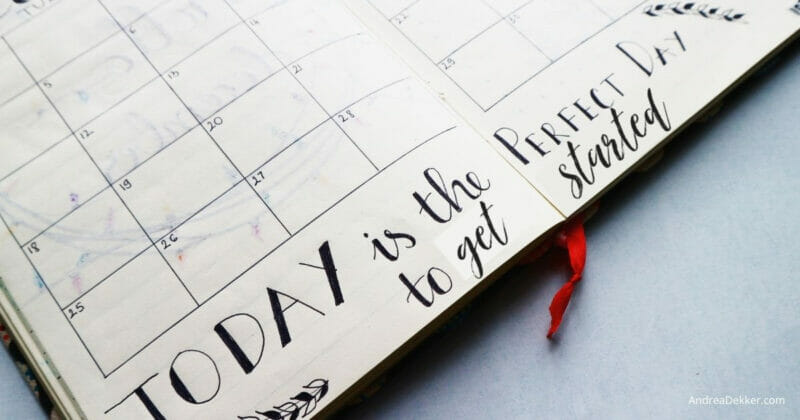 TU
5
12 13 14
6
18 19 20 21
25 26 27 28
22
29
TODAY is the PERFECT DAY
to get started
AndreaDekker.com